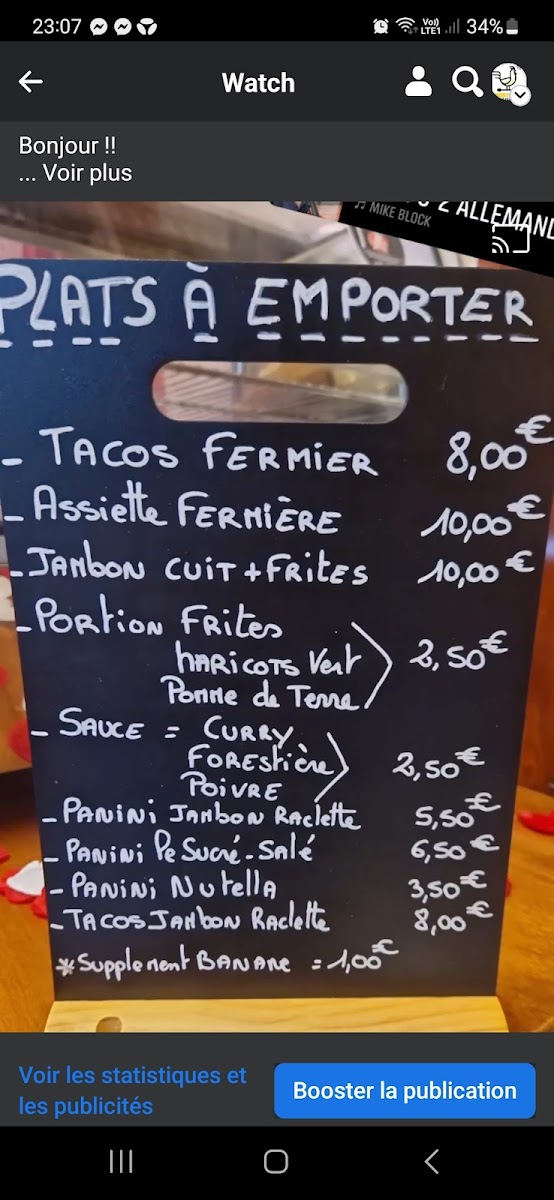 23:07 Vo)) LTE1 34%
Watch
Bonjour !!
... Voir plus
MIKE BLOCK
2 ALLEMAND
PLATS À EMPORTER
- TACOS FERMIER 8,00€
- Assiette FERMIÈRE 10,00€
- JAMBON CUIT + FRITES 10,00€
- PORTION FRITES
HARICOTS Vert
Pomme de Terre 2,50€
- SAUCE = CURRY
FORESTIÈRE
POIVRE 2,50€
- PANINI JAMBON RACLETTE 5,50€
- PANINI Pe Sucré-Salé 6,50€
- PANINI NUTELLA 3,50€
- TACOS JAMBON Raclette 8,00€
* Supplement BANANE = 1,00€
Voir les statistiques et
les publicités
Booster la publication